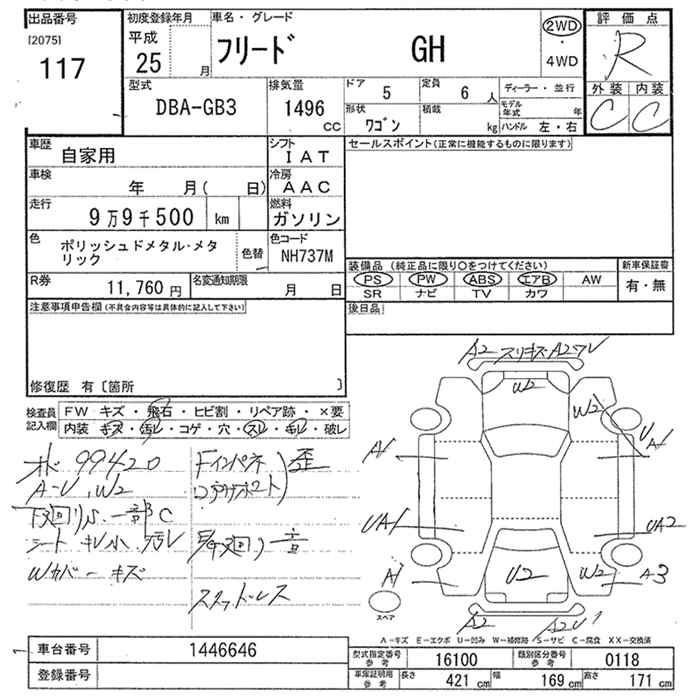 出品番号
[2075]
117
初度登録年月
平成
25 月
車名・グレード
フリード GH
2WD
・
4WD
評価点
R
外装 内装
C C
型式
DBA-GB3
排気量
1496
CC
ドア 5
定員 6 人
形状 ワゴン
積載 kg
ディーラー・並行
モデル年式 年
ハンドル 左・右
車歴
自家用
シフト
IAT
車検
年 月( 日)
冷房
AAC
走行
9万9千500 km
燃料
ガソリン
色
ポリッシュドメタル・メタ
リック
色替
色コード
NH737M
R券
11,760 円
名変通知期限
月 日
セールスポイント(正常に機能するものに限ります)
装備品 (純正品に限り○をつけてください)
PS PW ABS エアB AW
SR ナビ TV カワ
新車保証書
有・無
後日品
注意事項申告欄(不具合内容等は具体的に記入して下さい)
修復歴 有〔箇所 〕
検査員
記入欄
FW キズ・飛石・ヒビ割・リペア跡・×要
内装 キズ・汚レ・コゲ・穴・スレ・キレ・破レ
99420
A-U, W2
下廻りS.一部C
シート キレ小.汚レ
Wカバーキズ
Fインパネ
歪
スタッドレス
A2 スリキズ A2
U2
W2
UA1
A1
UA1
UA2
A1
U2
W2
A3
A2
A2U1
スペア
A-キズ E-エクボ U-凹み W-補修跡 S-サビ C-腐食 XX-交換済
車台番号 1446646
登録番号
型式指定番号
参考
16100
類別区分番号
参考
0118
車庫証明用
参考
長さ 421 cm
幅 169 cm
高さ 171 cm